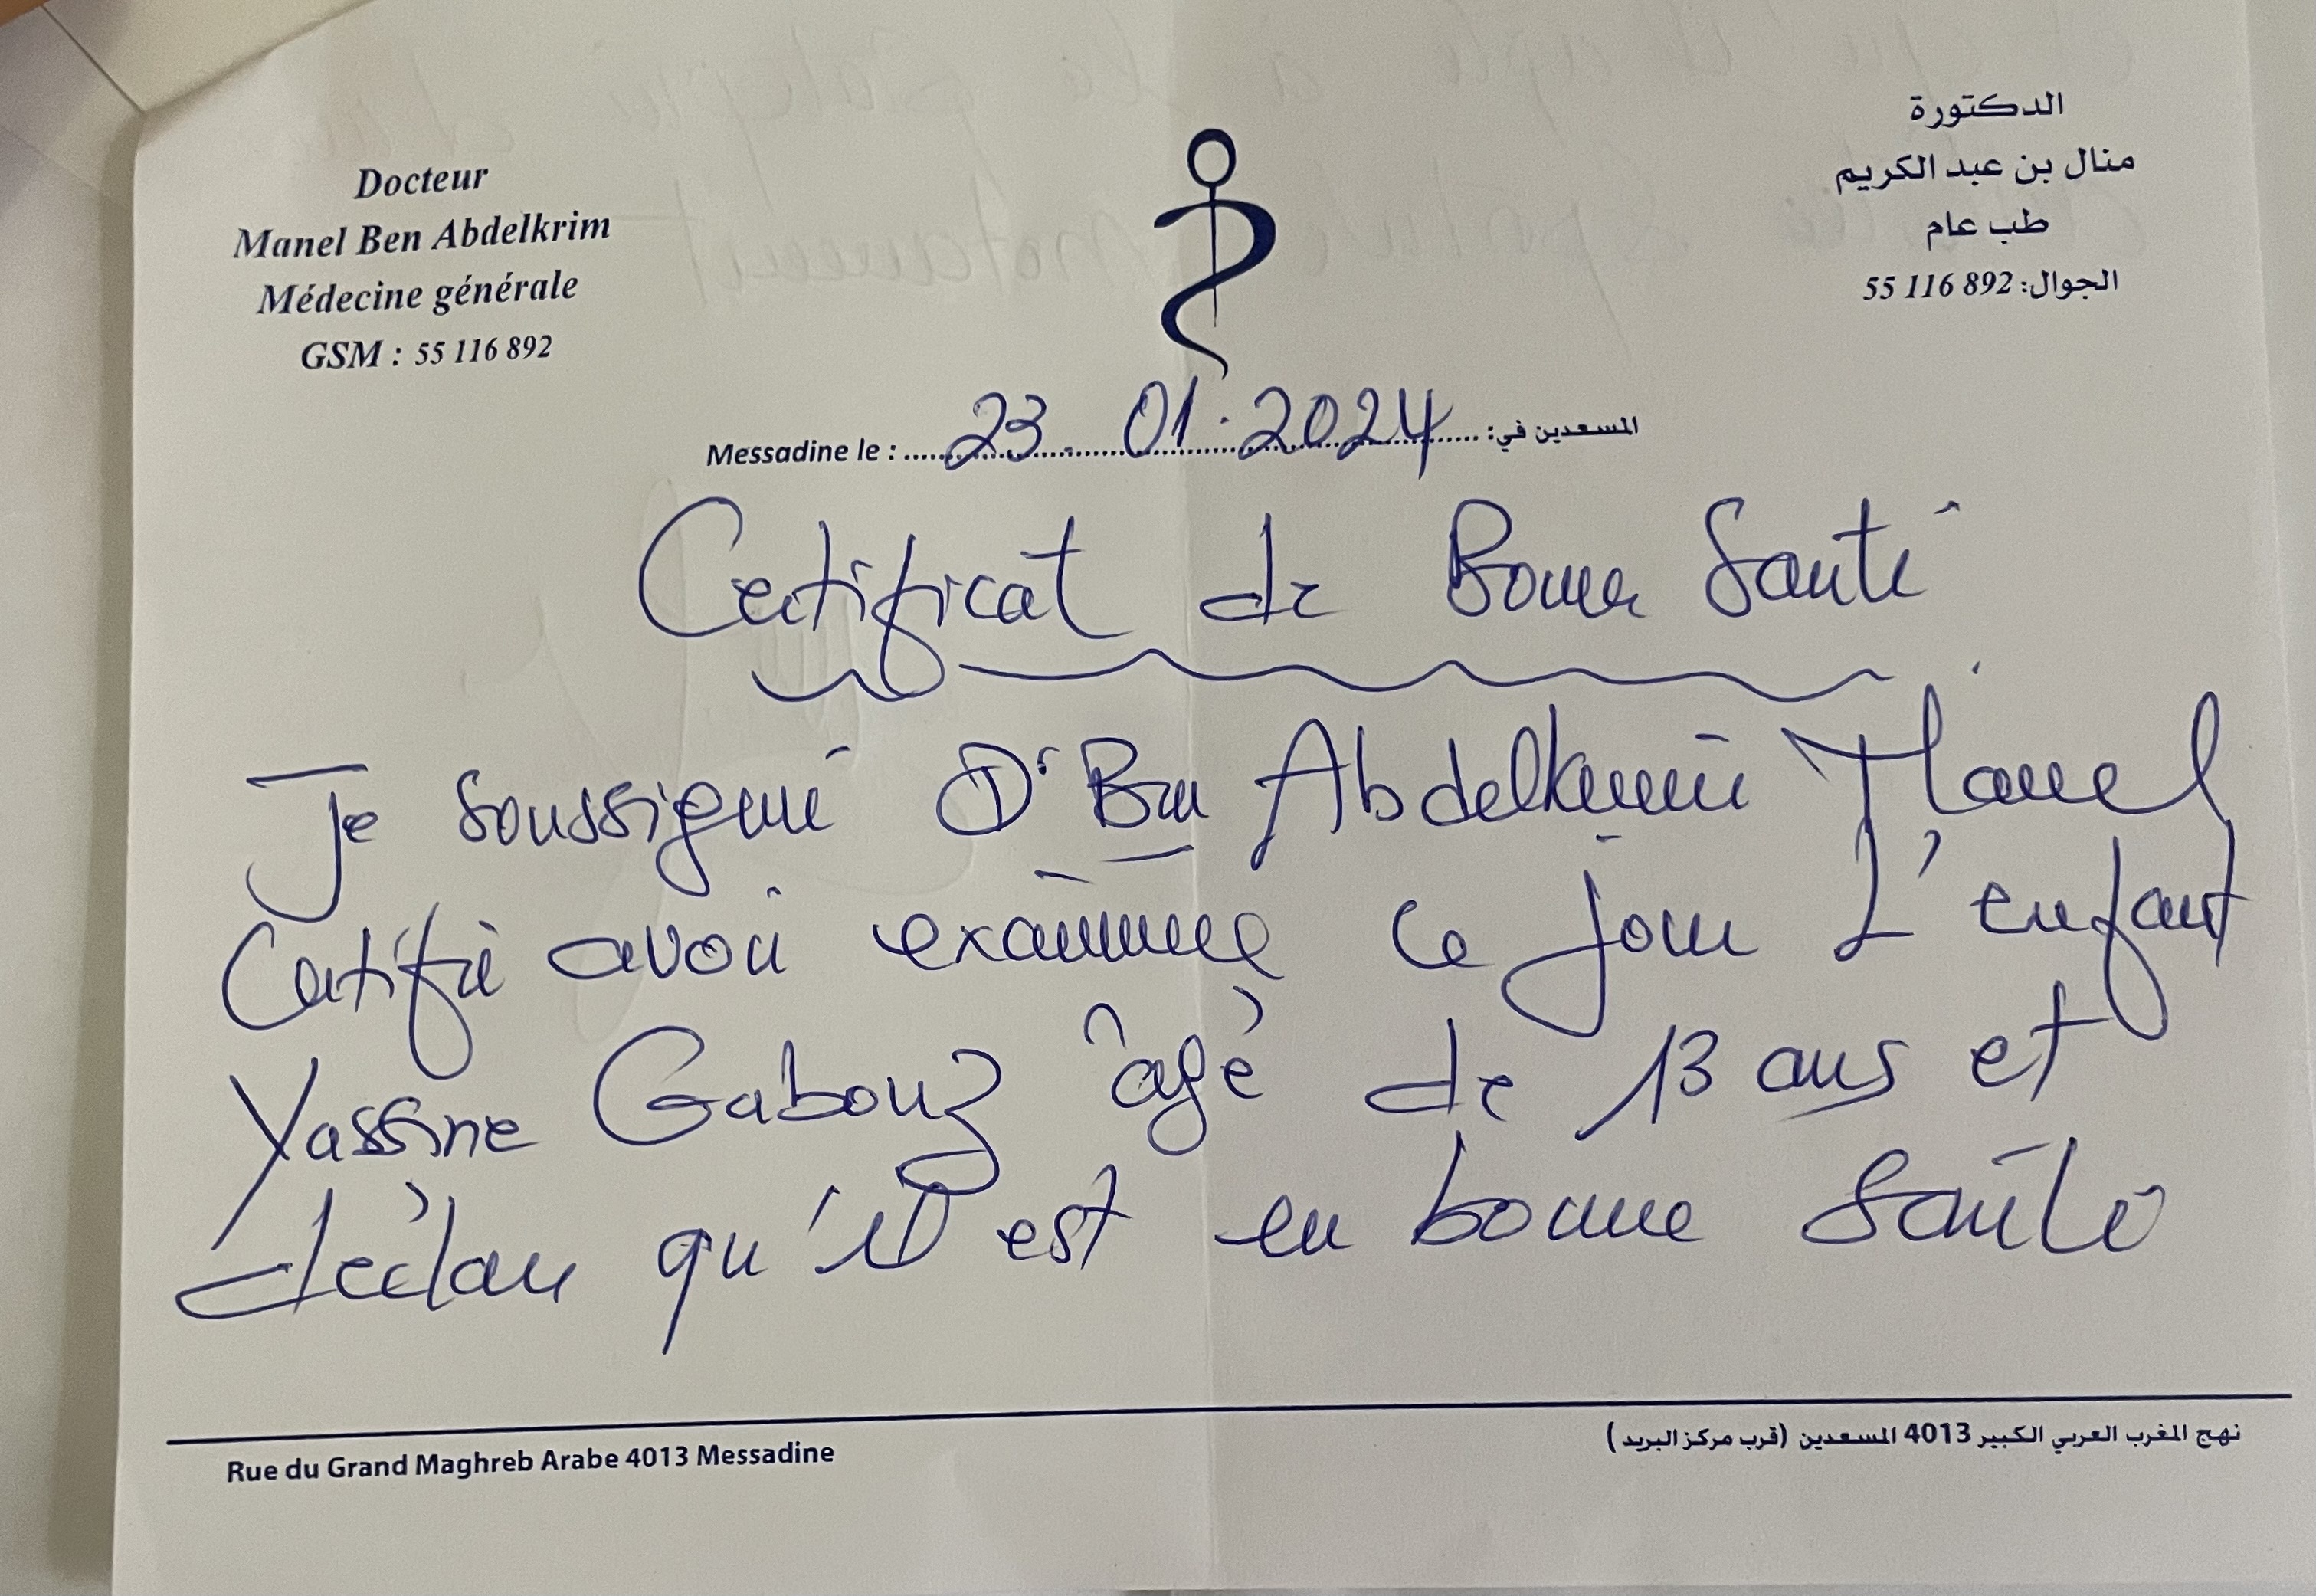 Docteur
Manel Ben Abdelkrim
Médecine générale
GSM : 55 116 892
الدكتورة
منال بن عبد الكريم
طب عام
الجوال: 892 116 55
Messadine le : 23.01.2024 المسعدين في:
Certificat de Bonne Santé
Je soussigné Dr Ben Abdelkrim Manel
Certifie avoir examiné ce jour L'enfant
Yassine Gabouz âgé de 13 ans et
déclare qu'il est en bonne Santé
Rue du Grand Maghreb Arabe 4013 Messadine
نهج المغرب العربي الكبير 4013 المسعدين (قرب مركز البريد)